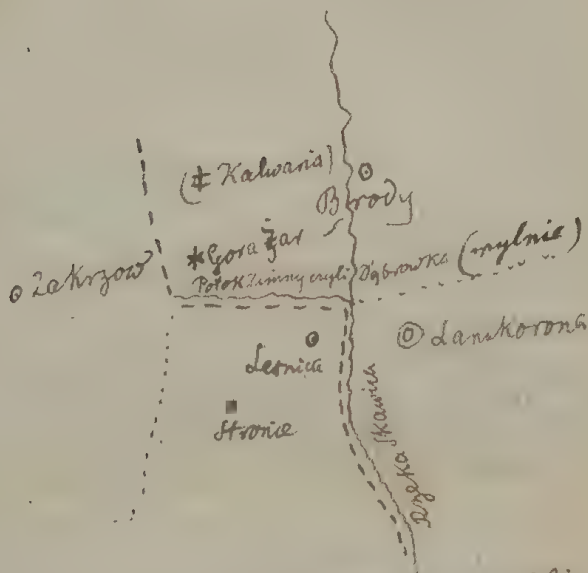 (‡ Kalwaria)
Brody
*Gora Żar
Zakrzow
Potok Zimny czyli Dąbrowka (mylnie)
Lanckorona
Lesnica
Stronie
Rzeka Skawica